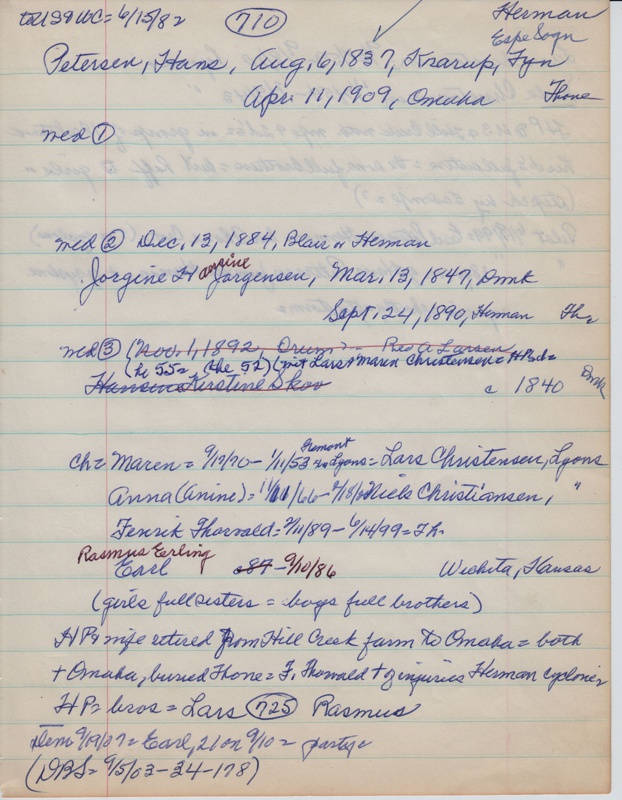 to USA WC = 6/15/82 710 Herman
Espe Sogn
Petersen, Hans, Aug. 6, 1837, Krarup, Fyn
Apr. 11, 1909, Omaha Thone
med ①
med ② Dec. 13, 1884, Blair or Herman
Jorgine H Jorgensen, Mar. 13, 1847, Dmk
Sept. 24, 1890, Herman Th=
med ③ (Nov. 1, 1892, Orum = Rev A Larsen
(he 55= she 52) (wit Lars + Maren Christensen = HP's ch=
Hansine Kirstine Skov c 1840 Dmk
Fremont
ch= Maren = 9/17/70 - 1/11/53 Lyons = Lars Christensen, Lyons
Anna (Anine) = 11/11/66 - Niels Christiansen, "
Fenrik Thorvald = 2/11/89 - 6/14/99 = Th.
Rasmus Earling
Earl 87 - 9/10/86 Wichita, Kansas
(girls full sisters = boys full brothers)
HP + wife retired from Hill Creek farm to Omaha = both
+ Omaha, buried Thone = F. Thorvald + injuries Herman cyclone=
HP= bros = Lars 725 Rasmus
Item 9/19/07 = Earl, 21 on 9/10 = party=
(DBS = 9/5/03-34-178)